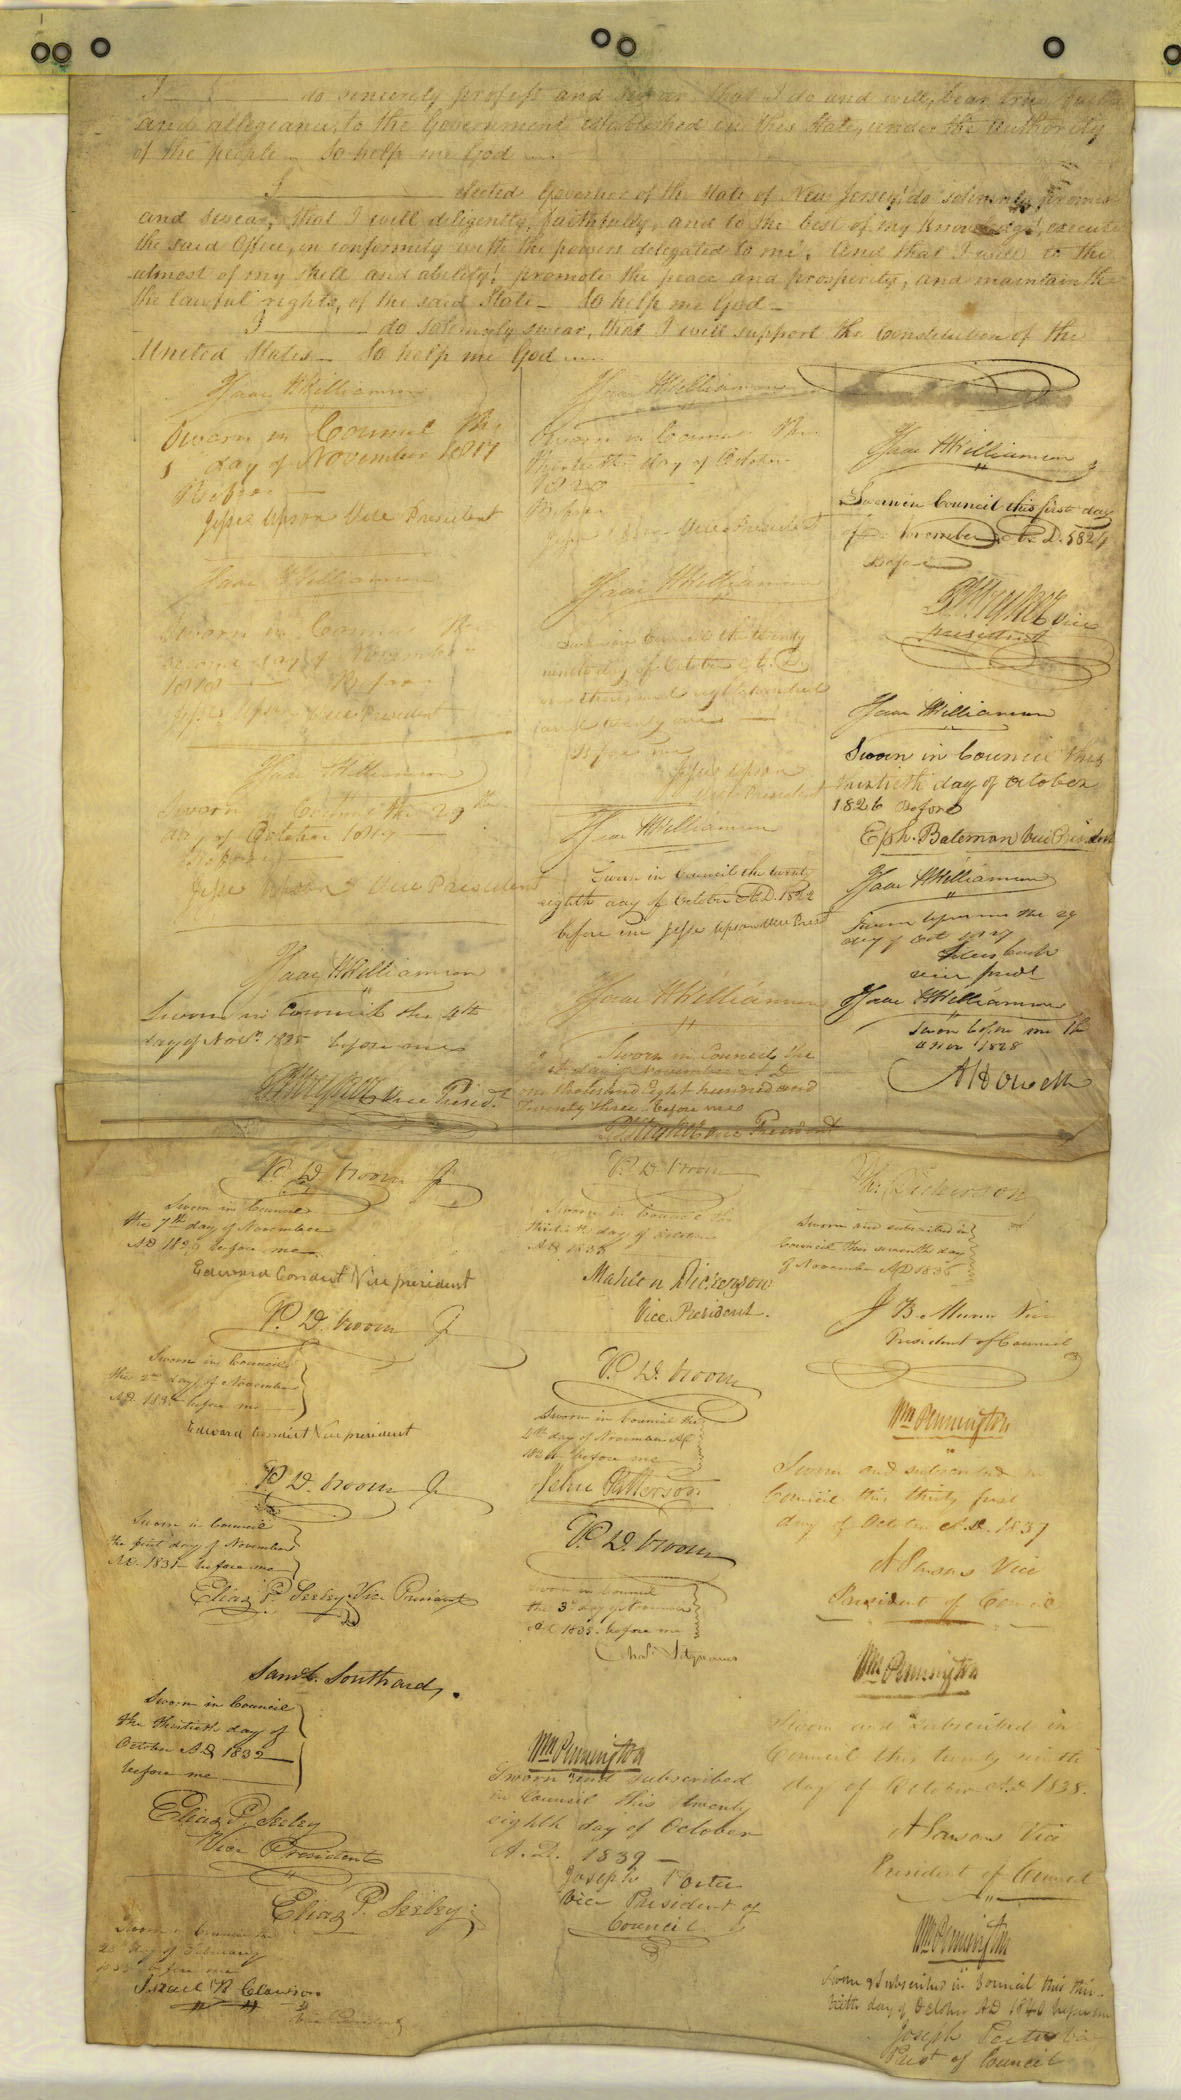 I ______ do sincerely profess and swear, that I do and will, bear true faith
and allegiance, to the Government established in this State, under the authority
of the people - So help me God
I ______ elected Governor of the State of New Jersey, do solemnly promise
and swear, that I will diligently, faithfully, and to the best of my knowledge, execute
the said Office, in conformity with the powers delegated to me; And that I will to the
utmost of my skill and ability, promote the peace and prosperity, and maintain the
the lawful rights, of the said State - So help me God -
I ______ do Solemnly swear, that I will support the Constitution of the
United States - So help me God
Isaac H Williamson
Sworn in Council the
day of November 1817
Before
Jesse Upson Vice President
Isaac H Williamson
Sworn in Council the
second day of November
1818 Before
Jesse Upson Vice President
Isaac H Williamson
Sworn in Council the 29th
day of October 1819
Before
Jesse Upson Vice President
Isaac H Williamson
Sworn in Council the 4th
day of Novr. 1825 before me
Vice Presidt
Isaac H Williamson
Sworn in Council the
Thirtieth day of October
1820
Before
Jesse Upson Vice President
Isaac H Williamson
Sworn in Council the twenty
ninth day of October A. D.
one thousand eight hundred
and twenty one
Before me
Jesse Upson
Vice President
Isaac H Williamson
Sworn in Council the twenty
eighth day of October A.D. 1822
before me Jesse Upson Vice Presdt
Isaac H Williamson
Sworn in Council the
day of November A D
one thousand Eight hundred and
Twenty three before me
Vice President
Isaac H Williamson
Sworn in Council this first day
of November A. D. 1824
Before
Vice
president
Isaac H Williamson
Sworn in Council this
thirtieth day of October
1826 before
Eph. Bateman Vice President
Isaac H Williamson
Sworn before me the 29
day of Oct 1827
vice presdt
Isaac H Williamson
Sworn before me the
Nov 1828
P. D. Vroom Jr
Sworn in Council
the 7th day of November
AD 1829 before me
Edward Condict Vice president
P. D. Vroom Jr
Sworn in Council
the 2nd day of November
AD. 1830 before me
Edward Condict Vice president
P. D. Vroom Jr
Sworn in Council
the first day of November
AD. 1831 before me
Elias P. Seeley Vice President
Saml. L. Southard.
Sworn in Council
the thirtieth day of
October AD 1832
before me
Elias P. Seeley
Vice President
Elias P. Seeley
Sworn in Council
day of February
before me
Israel R Clawson
Vice President
P. D. Vroom
Sworn in Council the
thirtieth day of October
AD 1833
Mahlon Dickerson
Vice President.
P. D. Vroom
Sworn in Council the
4th day of November AD
1834 before me
John Patterson
P. D. Vroom
Sworn in Council
the 3d day of November
AD 1835 before me
Wm Pennington
Sworn and subscribed
in Council this twenty
eighth day of October
A. D. 1839 -
Joseph Porter
Vice President of
Council
Phi. Dickerson
Sworn and subscribed in
Council this seventh day
of November AD 1836
J B Munn Vice
President of Council
Wm Pennington
Sworn and subscribed in
Council this thirty first
day of October A.D. 1837
A Parsons Vice
President of Council
Wm Pennington
Sworn and subscribed in
Council this twenty ninth
day of October A.D 1838.
A Parsons Vice
President of Council
Wm Pennington
Sworn & Subscribed in Council this thir-
tieth day of October AD 1840 before me
Joseph Porter Vice
Prest of Council